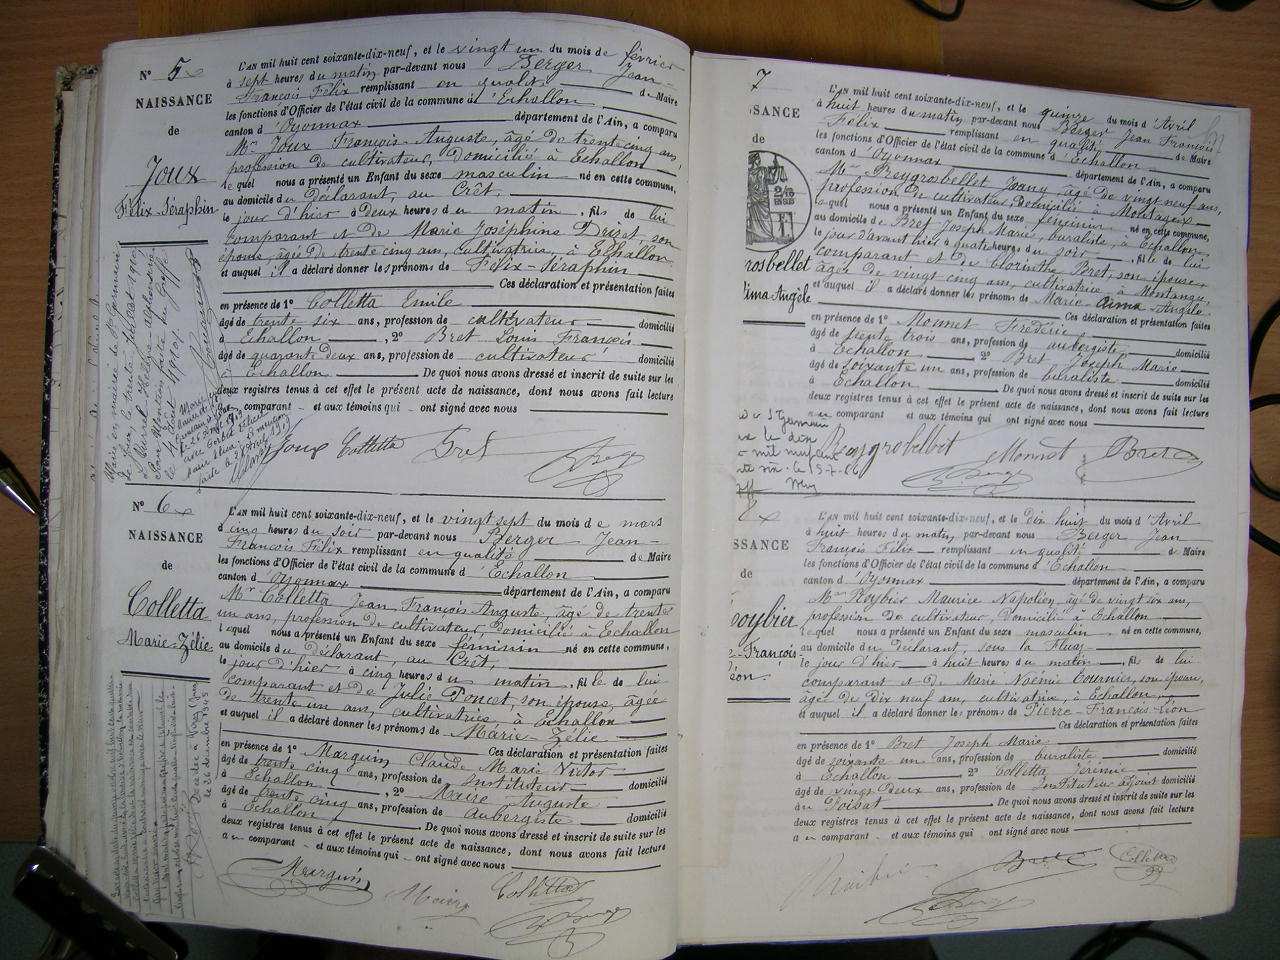 N° 5
NAISSANCE
de
Joux
Félix-Séraphin
L'AN mil huit cent soixante-dix-neuf, et le vingt un du mois de février
à sept heures du matin par-devant nous Berger Jean-
François Félix remplissant en qualité de Maire
les fonctions d'Officier de l'état civil de la commune d'Echallon
canton d'Oyonnax département de l'Ain, a comparu
Mr Joux François-Auguste, âgé de trente cinq ans,
profession de cultivateur, Domicilié à Echallon
lequel nous a présenté un Enfant du sexe masculin né en cette commune,
au domicile du Déclarant, au Crêt,
le jour d'hier à deux heures du matin, fils de lui
comparant et de Marie Joséphine Druet, son
épouse, âgée de trente cinq ans, cultivatrice, à Echallon
et auquel il a déclaré donner les prénoms de Félix-Séraphin
Ces déclaration et présentation faites
en présence de 1° Colletta Emile
âgé de trente six ans, profession de cultivateur domicilié
à Echallon, 2° Bret Louis François
âgé de quarante deux ans, profession de cultivateur domicilié
à Echallon De quoi nous avons dressé et inscrit de suite sur les
deux registres tenus à cet effet le présent acte de naissance, dont nous avons fait lecture
comparant et aux témoins qui ont signé avec nous
Joux Colletta Bret Berger
N° 6
NAISSANCE
de
Colletta
Marie-Zélie
L'AN mil huit cent soixante-dix-neuf, et le vingt sept du mois de mars
à cinq heures du soir par-devant nous Berger Jean-
François Félix remplissant en qualité de Maire
les fonctions d'Officier de l'état civil de la commune d'Echallon
canton d'Oyonnax département de l'Ain, a comparu
Mr Colletta Jean François Auguste, âgé de trente
un ans, profession de cultivateur, domicilié à Echallon
lequel nous a présenté un Enfant du sexe féminin né en cette commune,
au domicile du Déclarant, au Crêt,
le jour d'hier, à cinq heures du matin, fille de lui
comparant et de Julie Poncet, son épouse, âgée
de trente un ans, cultivatrice, à Echallon
et auquel il a déclaré donner les prénoms de Marie-Zélie
Ces déclaration et présentation faites
en présence de 1° Marquin Claude Marie Victor
âgé de trente cinq ans, profession de Instituteur domicilié
à Echallon, 2° Maire Auguste
âgé de trente cinq ans, profession de Aubergiste domicilié
à Echallon De quoi nous avons dressé et inscrit de suite sur les
deux registres tenus à cet effet le présent acte de naissance, dont nous avons fait lecture
a u comparant et aux témoins qui ont signé avec nous
Décédée à
26 décembre 1945
Marquin Maire Colletta Berger
7
SSANCE
de
rosbellet
L'AN mil huit cent soixante-dix-neuf, et le quinze du mois d'Avril
à huit heures du matin par-devant nous Berger Jean François
Félix remplissant en qualité de Maire
les fonctions d'Officier de l'état civil de la commune d'Echallon
canton d'Oyonnax département de l'Ain, a comparu
Mr Reygrosbellet Joany âgé de vingt neuf ans,
profession de cultivateur, Domicilié à Montanges
lequel nous a présenté un Enfant du sexe féminin né en cette commune,
au domicile de Bret Joseph Marie, buraliste, à Echallon,
le jour d'avant hier à quatre heures du soir, fille de lui
comparant et de Clorinthe Bret, son épouse,
âgée de vingt cinq ans, cultivatrice, à Montanges,
et auquel il a déclaré donner les prénoms de Marie Aima-Angèle
Ces déclaration et présentation faites
en présence de 1° Monnet Frédéric
âgé de trente trois ans, profession de aubergiste domicilié
à Echallon 2° Bret Joseph Marie
âgé de soixante un ans, profession de buraliste domicilié
à Echallon De quoi nous avons dressé et inscrit de suite sur les
deux registres tenus à cet effet le présent acte de naissance, dont nous avons fait lecture
au comparant et aux témoins qui ont signé avec nous
Reygrosbellet Monnet Bret Berger
8
SSANCE
de
oybier
-François-
éon.
L'AN mil huit cent soixante-dix-neuf, et le dix huit du mois d'Avril
à huit heures du matin par-devant nous Berger Jean
François Félix remplissant en qualité de Maire
les fonctions d'Officier de l'état civil de la commune d'Echallon
canton d'Oyonnax département de l'Ain, a comparu
Mr Roybier Maurice Napoléon, âgé de vingt six ans,
profession de cultivateur, Domicilié à Echallon
lequel nous a présenté un Enfant du sexe masculin né en cette commune,
au domicile du Déclarant, sous la
le jour d'hier à huit heures du matin, fils de lui
comparant et de Marie Noémie Tournier, son épouse,
âgée de dix neuf ans, cultivatrice, à Echallon,
et auquel il a déclaré donner les prénoms de Pierre-François-Léon
Ces déclaration et présentation faites
en présence de 1° Bret Joseph Marie
âgé de soixante un ans, profession de buraliste domicilié
à Echallon 2° Colletta Jérémie
âgé de vingt deux ans, profession de Instituteur adjoint domicilié
au Poizat De quoi nous avons dressé et inscrit de suite sur les
deux registres tenus à cet effet le présent acte de naissance, dont nous avons fait lecture
a u comparant et aux témoins qui ont signé avec nous
Roibier Bret Colletta Berger